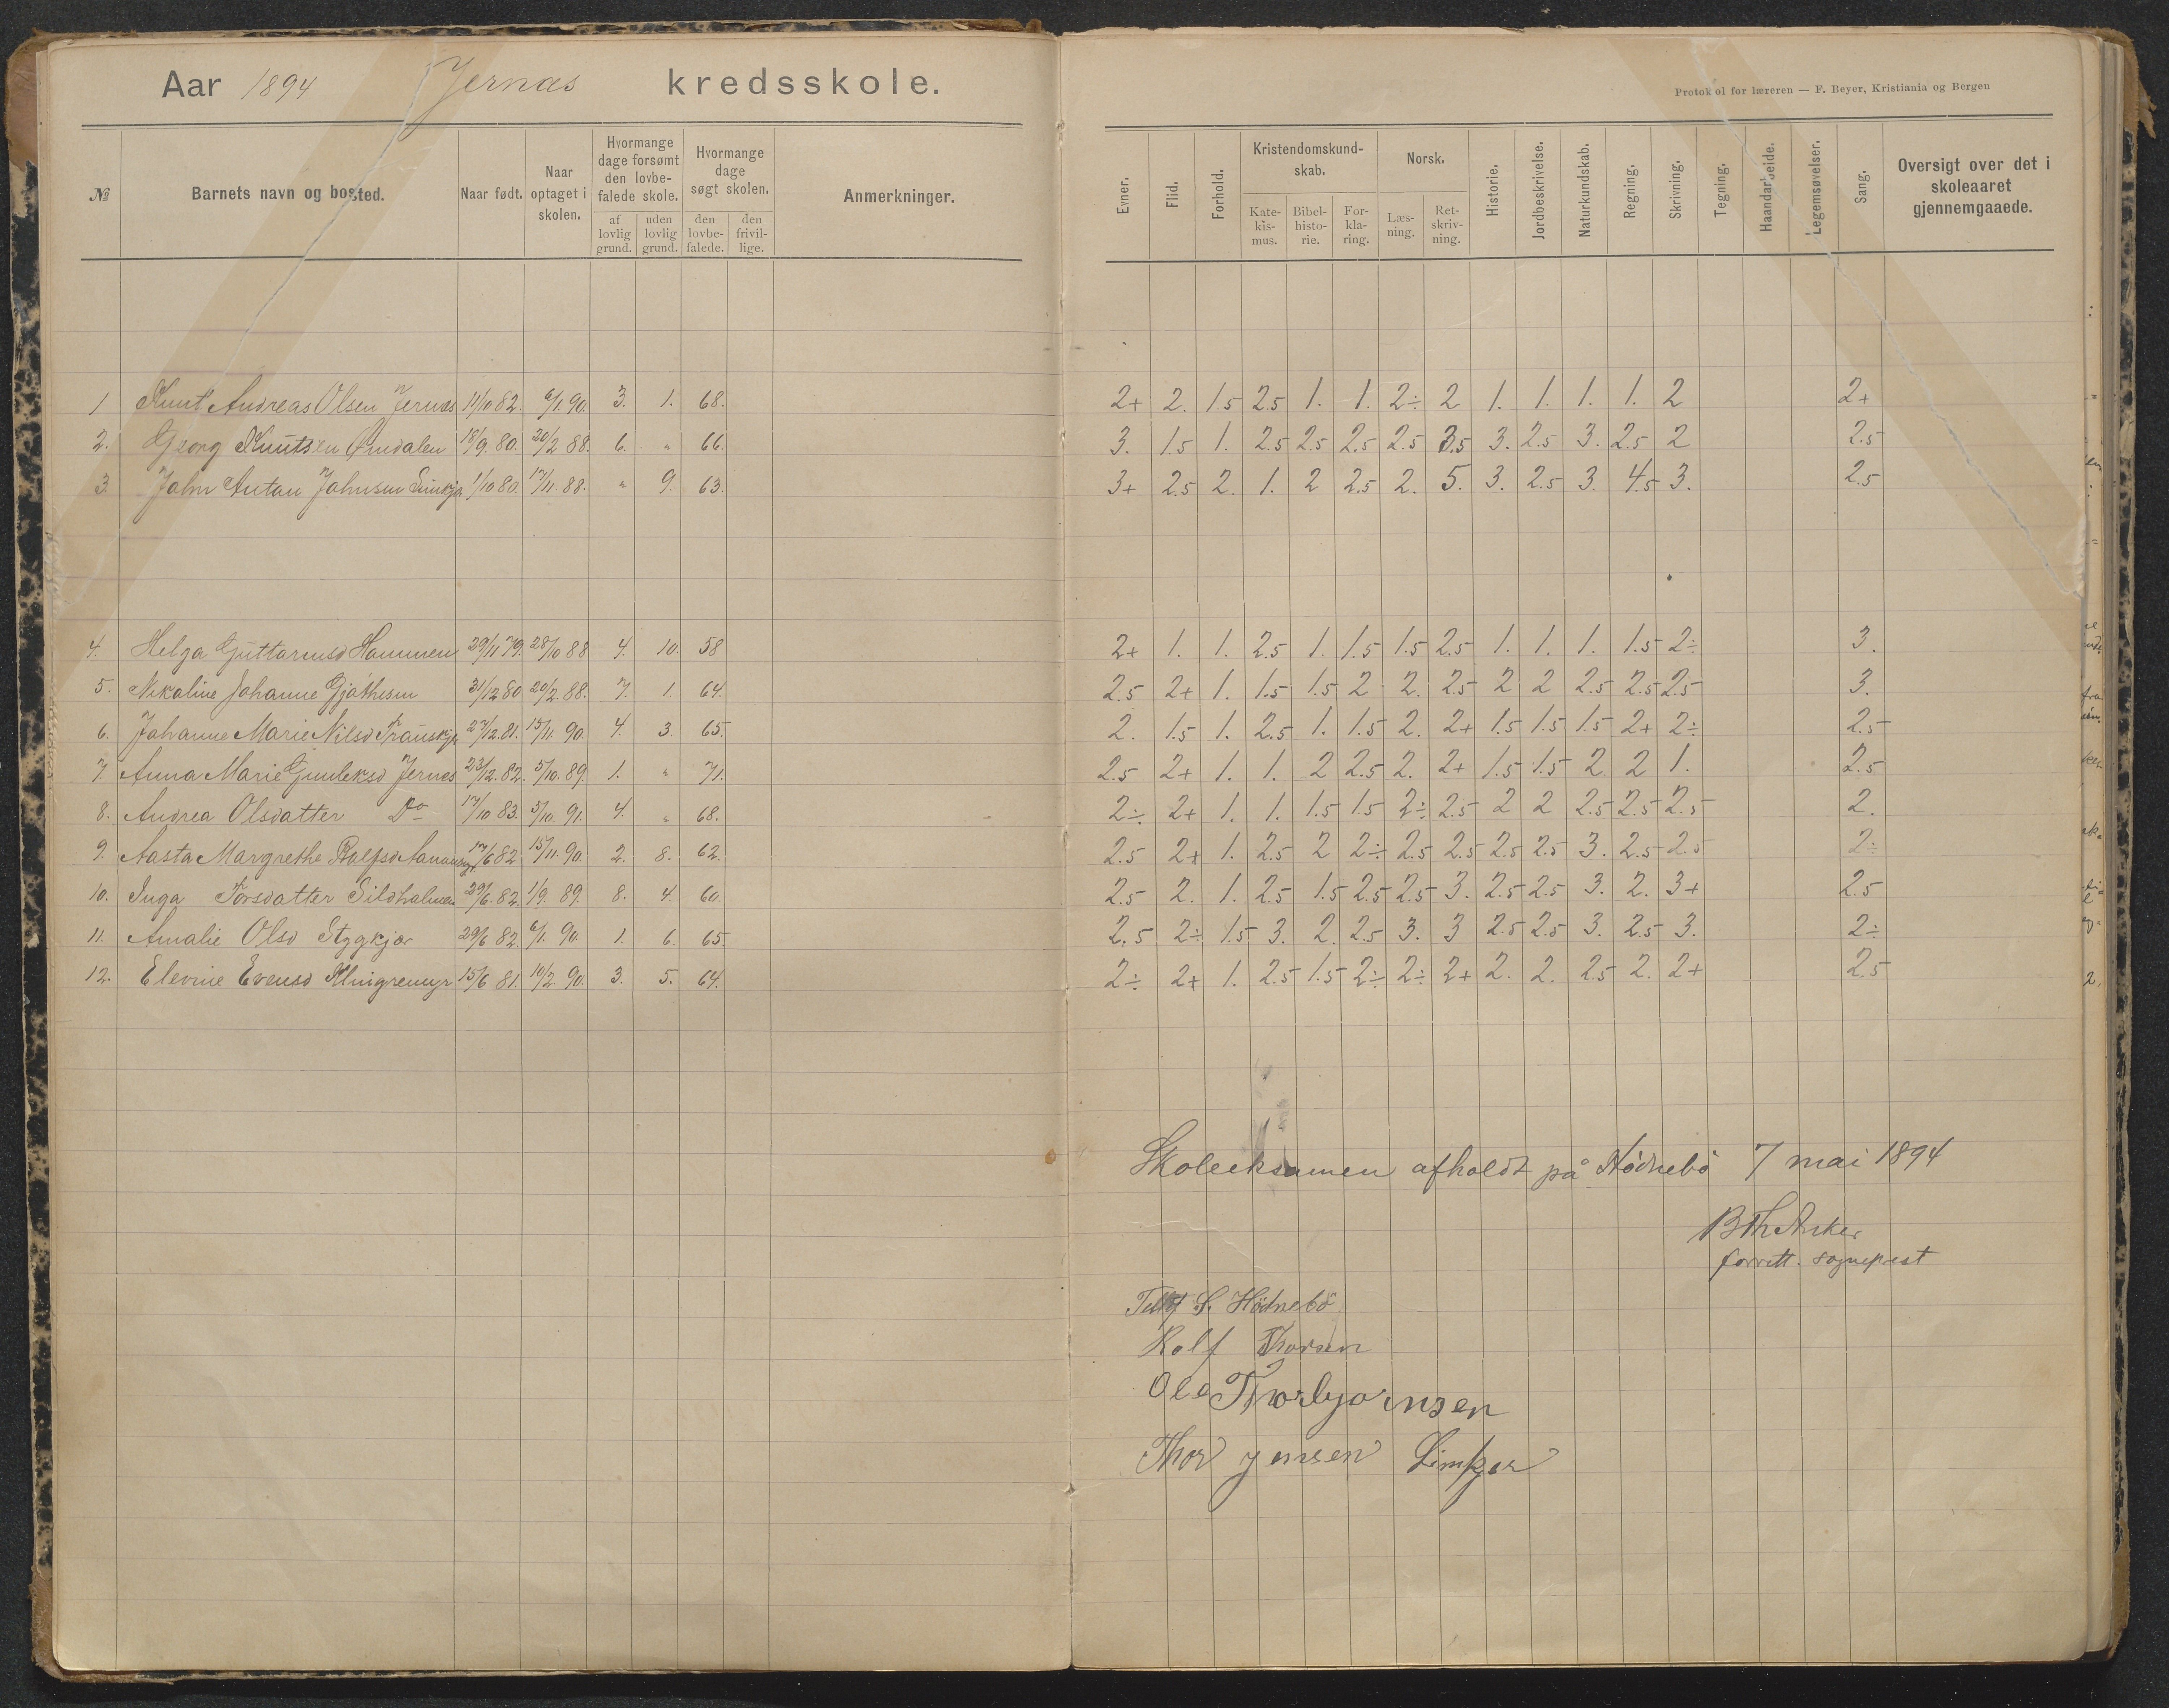 Aar 1894 Jernæs kredsskole.
Protokol for læreren — F. Beyer, Kristiania og Bergen
№ Barnets navn og bosted. Naar født. Naar optaget i skolen. Hvormange dage forsømt den lovbefalede skole. af lovlig grund. uden lovlig grund. Hvormange dage søgt skolen. den lovbefalede. den frivillige. Anmerkninger.
Evner. Flid. Forhold. Kristendomskundskab. Katekismus. Bibelhistorie. Forklaring. Norsk. Læsning. Retskrivning. Historie. Jordbeskrivelse. Naturkundskab. Regning. Skrivning. Tegning. Haandarbeide. Legemsøvelser. Sang. Oversigt over det i skoleaaret gjennemgaaede.
1 Knut Andreas Olsen Jernæs 11/10 82. 6/1. 90. 3. 1. 68. 2+ 2. 1.5 2.5 1. 1. 2÷ 2 1. 1. 1. 1. 2 2+
2. Georg Knutsen 18/9. 80. 20/2 88. 6. „ 66. 3. 1.5 1. 2.5 2.5 2.5 2.5 3.5 3. 2.5 3. 2.5 2 2.5
3. John Antan Johnsen 1/10 80. 17/11. 88. „ 9. 63. 3+ 2.5 2. 1. 2 2.5 2. 5. 3. 2.5 3. 4.5 3. 2.5
4. Helga Guttormsd Hammen 29/11 79. 28/10 88 4. 10. 58 2+ 1. 1. 2.5 1. 1.5 1.5 2.5 1. 1. 1. 1.5 2÷ 3.
5. Nikaline Johanne 31/12 80 20/2. 88. 7. 1 64. 2.5 2+ 1. 1.5 1.5 2 2. 2.5 2 2 2.5 2.5 2.5 3.
6. Johanne Marie Nilsd 27/12. 81. 15/11. 90. 4. 3. 65. 2. 1.5 1. 2.5 1. 1.5 2. 2+ 1.5 1.5 1.5 2+ 2÷ 2.5
7. Anna Marie Gunleksd Jernes 23/12. 82. 5/10. 89. 1. „ 71. 2.5 2+ 1. 1. 2 2.5 2. 2+ 1.5 1.5 2 2 1. 2.5
8. Andrea Olsdatter Do 17/10 83. 5/10. 91. 4. „ 68. 2÷ 2+ 1. 1. 1.5 1.5 2÷ 2.5 2 2 2.5 2.5 2.5 2.
9. Aasta Margrethe Rolfsd 17/6 82 15/11. 90. 2. 8. 62. 2.5 2+ 1. 2.5 2 2÷ 2.5 2.5 2.5 2.5 3. 2.5 2.5 2÷
10. Inga Torsdatter Sildholmen 29/6. 82. 1/9. 89. 8. 4. 60. 2.5 2. 1. 2.5 1.5 2.5 2.5 3. 2.5 2.5 3. 2. 3+ 2.5
11. Amalie Olsd Styggkjær 29/6 82. 6/1. 90. 1. 6. 65. 2.5 2÷ 1.5 3. 2. 2.5 3. 3 2.5 2.5 3. 2.5 3. 2÷
12. Elevine Evensd Klingremyr 15/6 81. 10/2 90. 3. 5. 64. 2÷ 2+ 1. 2.5 1.5 2÷ 2÷ 2+ 2. 2. 2.5 2. 2+ 2.5
Skoleeksamen afholdt på Hödnebö 7 mai 1894
B Th Anker
forrett. sognepræst
S. Hödnebö
Rolf Thorsen
Ole Thorbjørnsen
Thor Jensen Limkjær